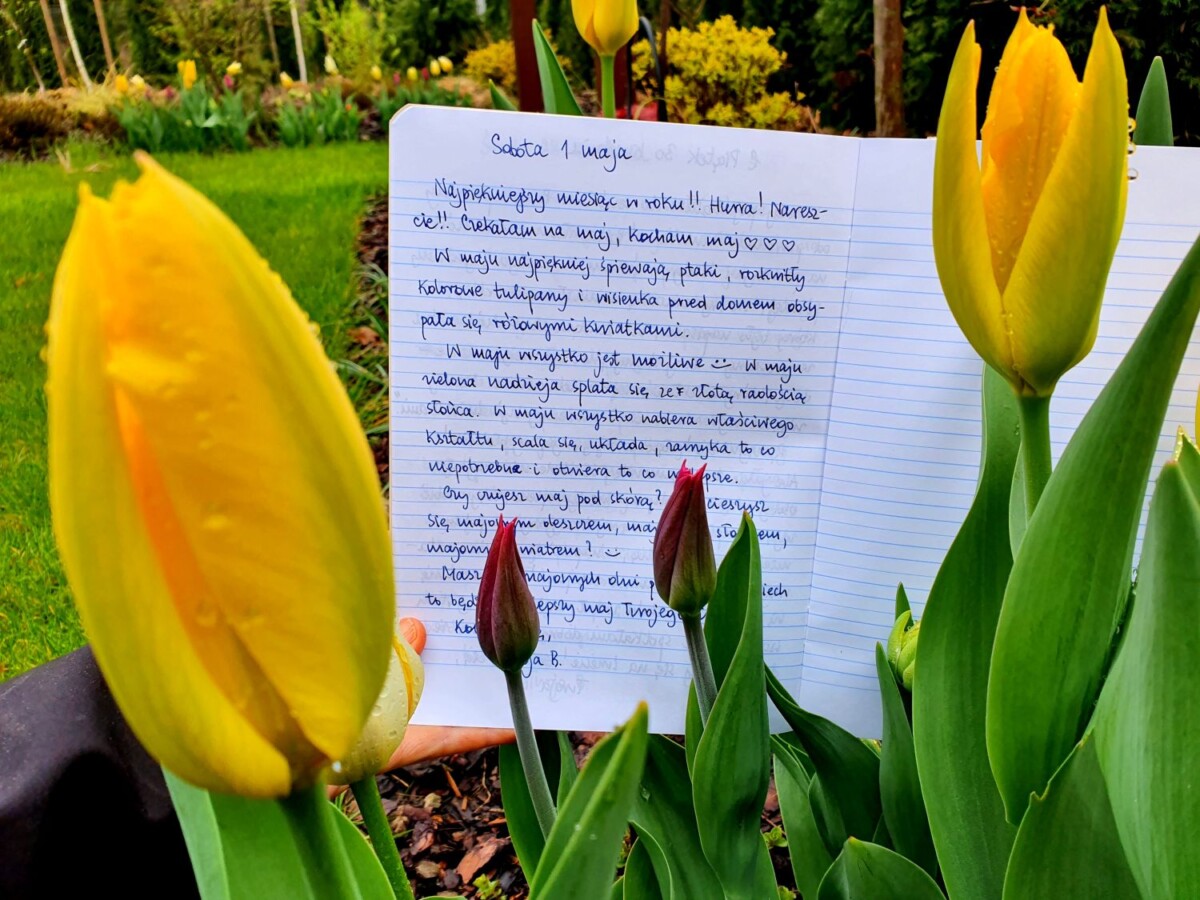 Sobota 1 maja
Najpiękniejszy miesiąc w roku!! Hurra! Naresz-
cie!! Czekałam na maj, kocham maj ♡♡♡
W maju najpiękniej śpiewają ptaki, rozkwitły
kolorowe tulipany i wisienka przed domem obsy-
pała się różowymi kwiatkami.
W maju wszystko jest możliwe :) W maju
zielona nadzieja splata się ze złotą radością
słońca. W maju wszystko nabiera właściwego
kształtu, scala się, układa, zamyka to co
niepotrzebne i otwiera to co
Czy czujesz maj pod skórą? cieszysz
się deszczem,
? :)
majowych dni
to Twojego
B.